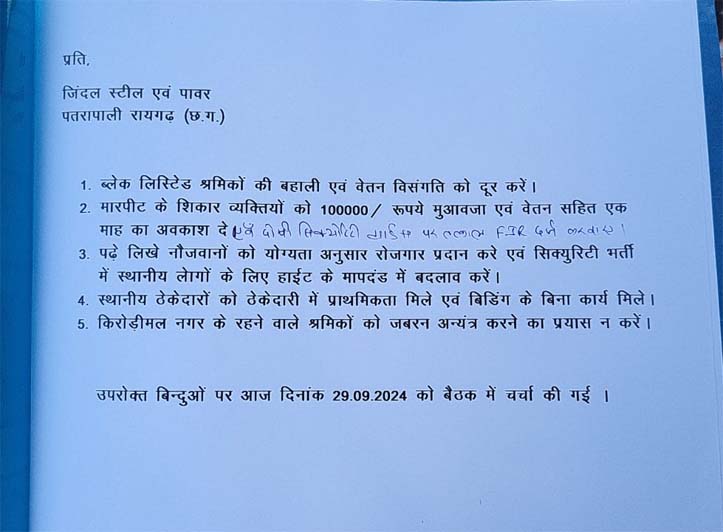 प्रति,
जिंदल स्टील एवं पावर
पतरापाली रायगढ़ (छ.ग.)
1. ब्लेक लिस्टिेड श्रमिकों की बहाली एवं वेतन विसंगति को दूर करें।
2. मारपीट के शिकार व्यक्तियों को 100000/ रूपये मुआवजा एवं वेतन सहित एक
माह का अवकाश दे एवं दोषी सिक्योरिटी गार्ड पर तत्काल FIR दर्ज करवाए।
3. पढ़े लिखे नौजवानों को योग्यता अनुसार रोजगार प्रदान करे एवं सिक्युरिटी भर्ती
में स्थानीय लेागों के लिए हाईट के मापदंड में बदलाव करें।
4. स्थानीय ठेकेदारों को ठेकेदारी में प्राथमिकता मिले एवं बिडिंग के बिना कार्य मिले।
5. किरोड़ीमल नगर के रहने वाले श्रमिकों को जबरन अन्यंत्र करने का प्रयास न करें।
उपरोक्त बिन्दुओं पर आज दिनांक 29.09.2024 को बैठक में चर्चा की गई ।